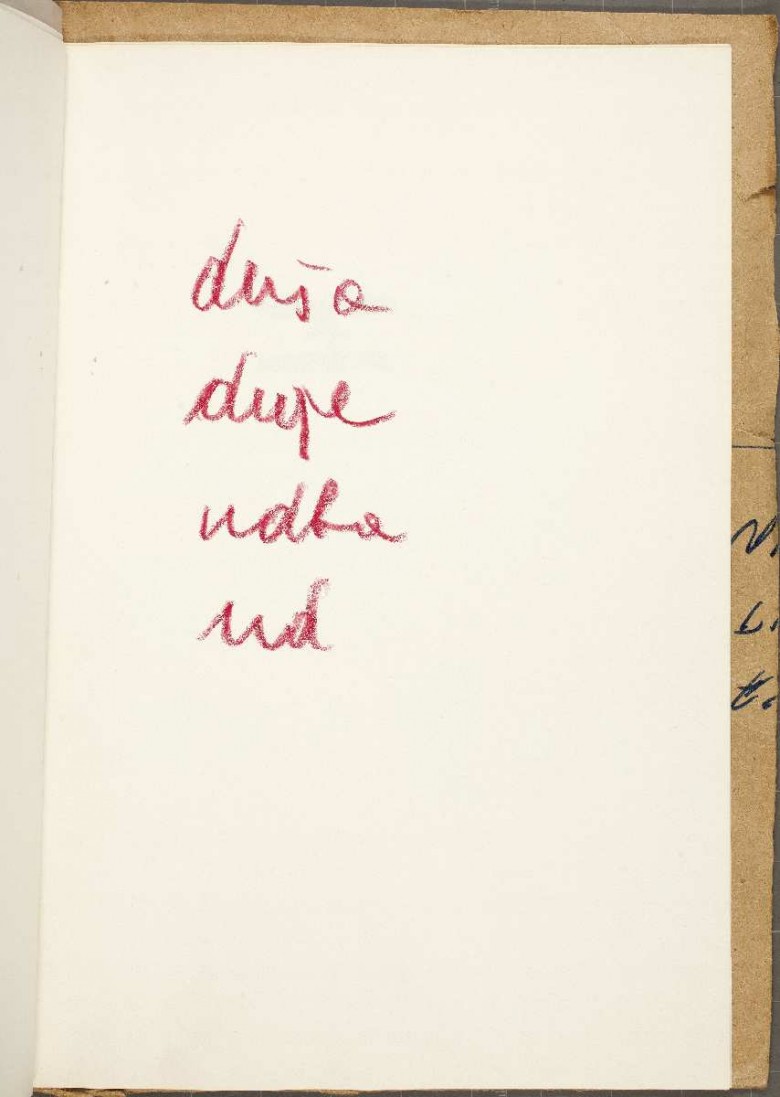 duša
dupe
udba
ud